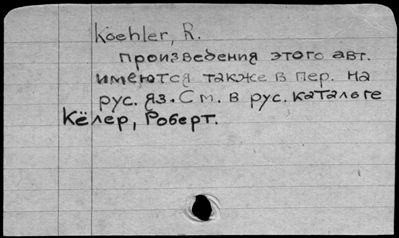 Koehler, R.
произведения этого авт.
имеются также в пер. на
рус. яз. См. в рус. каталоге
Кёлер, Роберт.